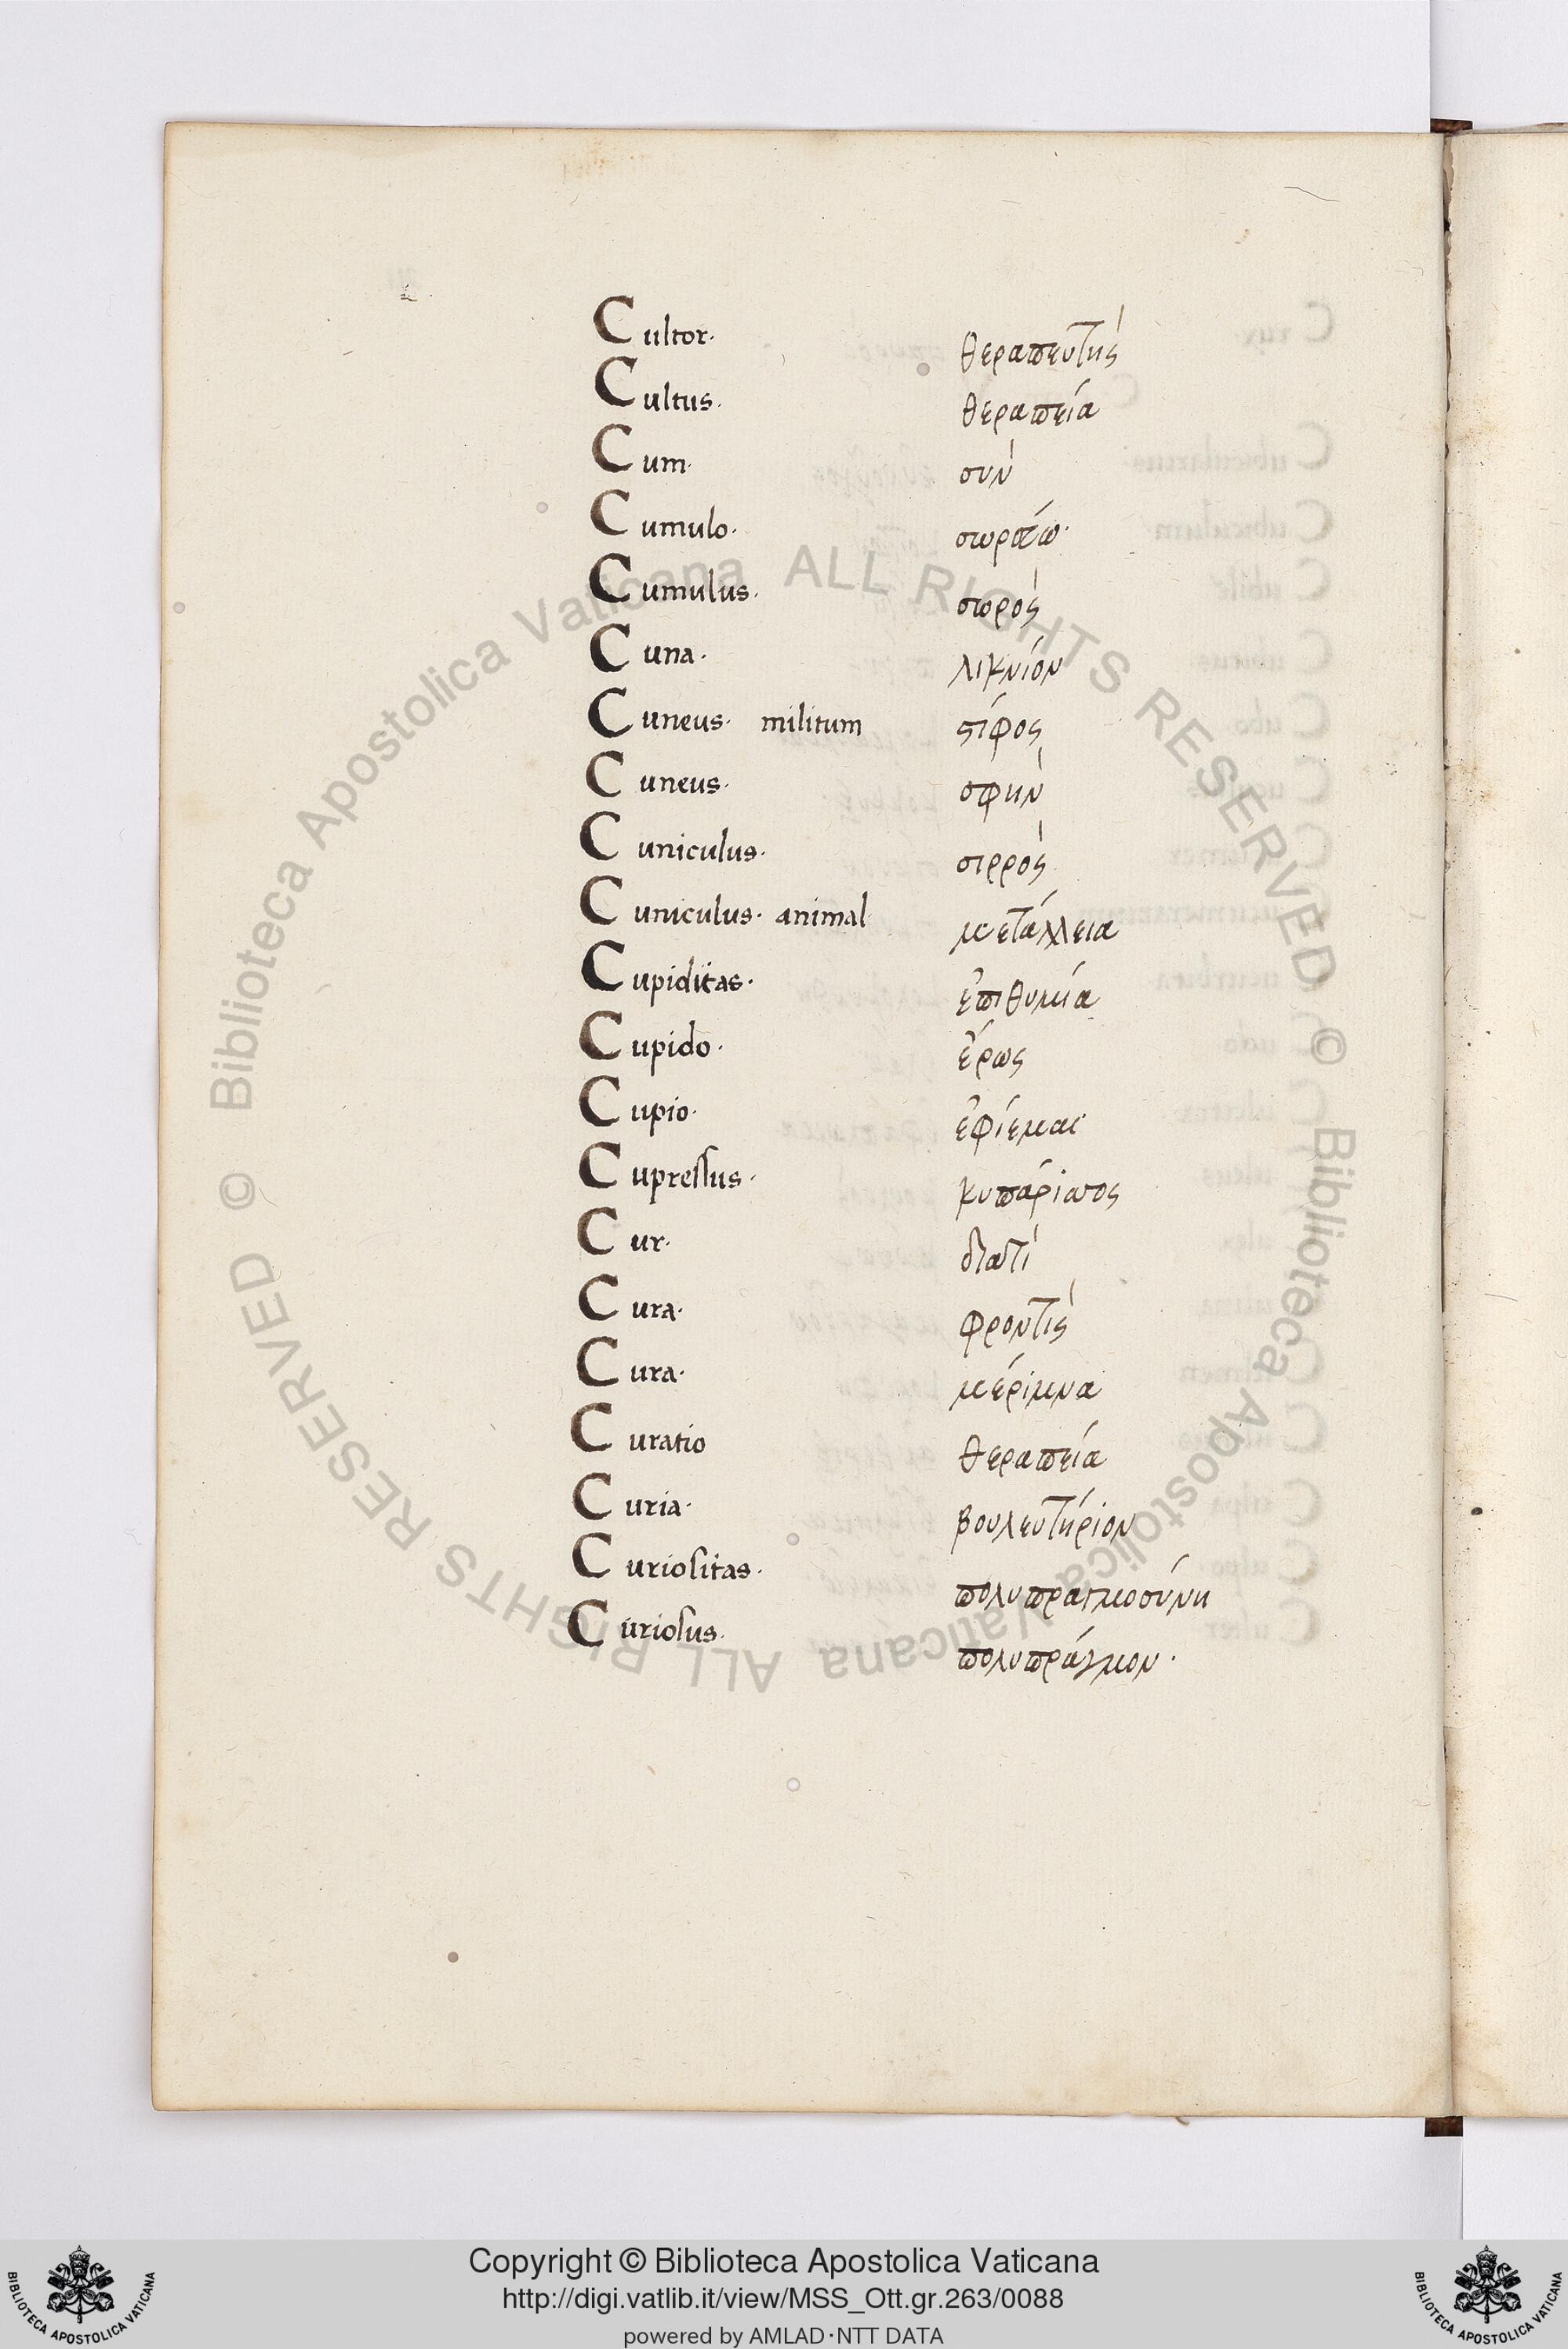 Cultor. θεραπευτής
Cultus. θεραπεία
Cum. σύν
Cumulo.
Cumulus. σωρός
Cuna. λικνίον
Cuneus. militum στίφος
Cuneus. σφήν
Cuniculus. σιρρός
Cuniculus. animal μετάλλεια
Cupiditas. ἐπιθυμία
Cupido. ἔρως
Cupio. ἐφίεμαι
Cupressus. κυπάρισσος
Cur. διατί
Cura. φροντίς
Cura. μέριμνα
Curatio θεραπεία
Curia. βουλευτήριον
Curiositas. πολυπραγμοσύνη
Curiosus. πολυπράγμον.
© Biblioteca Apostolica Vaticana ALL RIGHTS RESERVED © Biblioteca Apostolica Vaticana ALL RIGHTS RESERVED
Copyright © Biblioteca Apostolica Vaticana
http://digi.vatlib.it/view/MSS_Ott.gr.263/0088
powered by AMLAD·NTT DATA
BIBLIOTECA APOSTOLICA VATICANA
BIBLIOTECA APOSTOLICA VATICANA